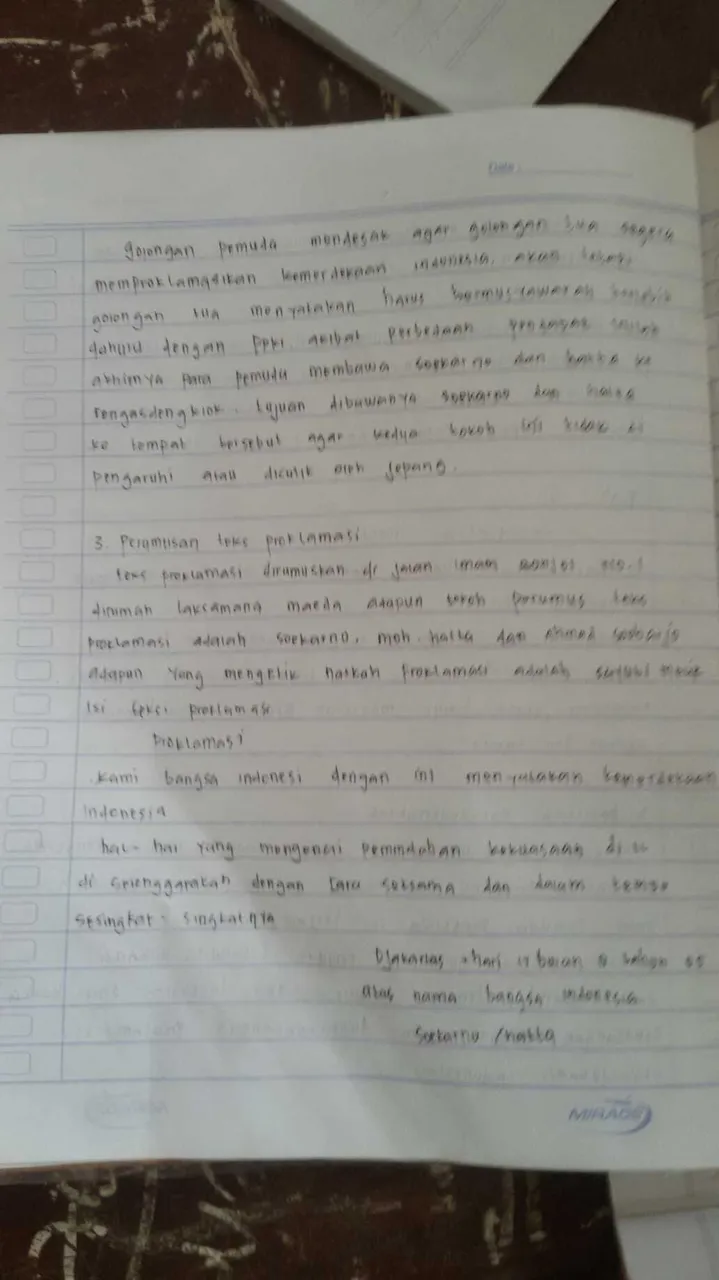 Date :
golongan pemuda mendesak agar golongan tua segera
memproklamasikan kemerdekaan indonesia, akan
golongan tua menyatakan harus bermusyawarah
dahulu dengan PPKI akibat perbedaan
akhirnya para pemuda membawa soekarno dan hatta ke
rengasdengklok. tujuan dibawanya soekarno dan hatta
ke tempat tersebut agar kedua tokoh tidak di
pengaruhi atau diculik oleh jepang.
3. Perumusan teks proklamasi
teks proklamasi dirumuskan di jalan imam bonjol no.1
dirumah laksamana maeda adapun tokoh perumus teks
proklamasi adalah soekarno, moh. hatta dan ahmad
adapun yang mengetik naskah proklamasi adalah
isi teks proklamasi
Proklamasi
kami bangsa indonesi dengan ini menyatakan kemerdekaan
indonesia
hal-hal yang mengenai pemindahan kekuasaan
di selenggarakah dengan cara seksama dan dalam tempo
sesingkat-singkatnya
hari 17 bulan 8 tahun 05
atas nama bangsa indonesia
Soekarno /hatta
MIRAGE